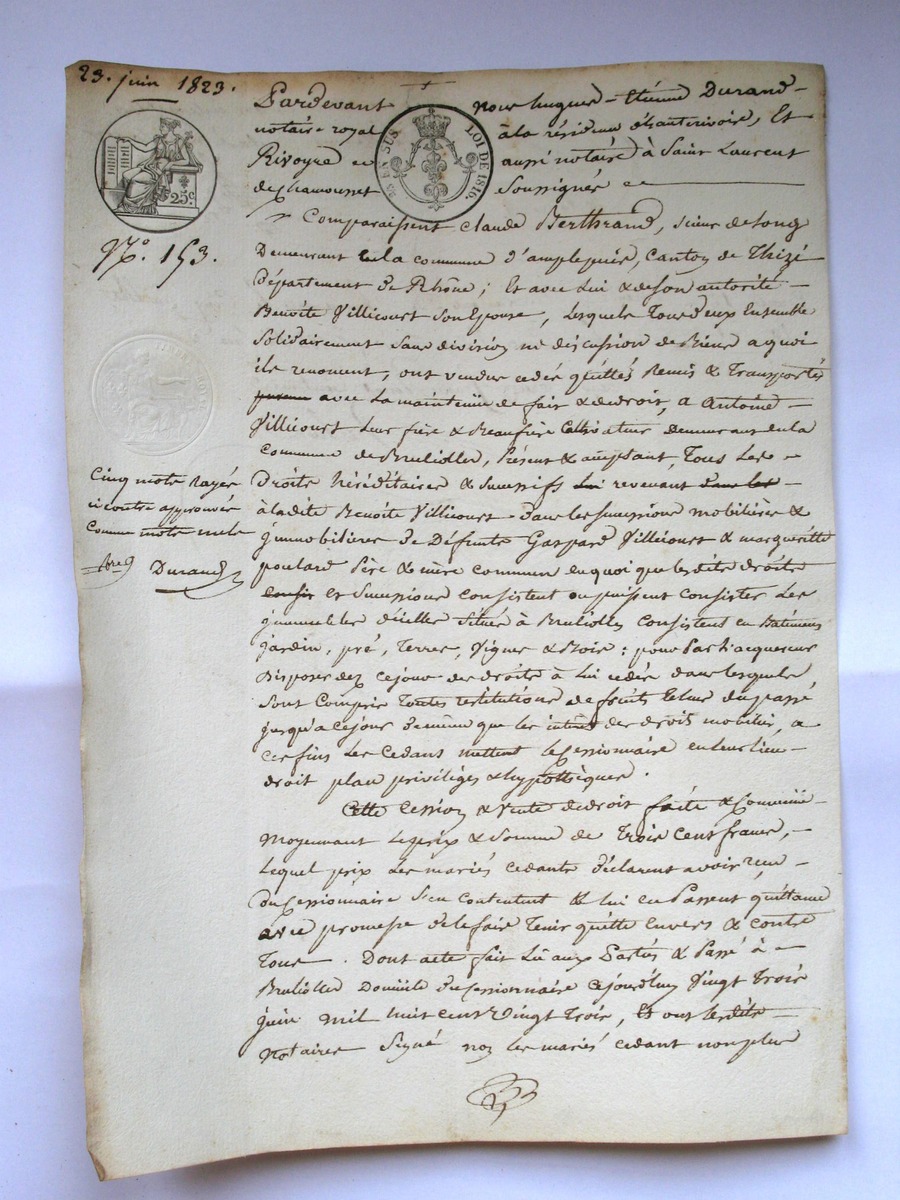 23. juin 1823.
Pardevant nous hugues-Etienne Durand-
notaire royal à la résidence, Et
Rivoyre aussi notaire à Saint Laurent
de chamousset soussignés
25c
EN SUS
LOI DE 1816.
N.° 153.
Comparaissent Claude Berthrand, scieur de long
Demeurant en la commune d'amplepuis, Canton de Thizi
Département du Rhône; Et avec Lui & de son autorité
Benoite Villicourt son Epouse, Lesquels Tous deux Ensemble
solidairement sans division ni discussion de Biens a quoi
ils renoncent, ont vendus cédés quittés Remis & Transportés
avec La maintenüe de fait & de droit, a Antoine
Villicourt Leur frère & Beaufrère Cultivateur Demeurant en la
Commune de Brullioles, Présent & acceptant, Tous Les
Droits héréditaires & successifs revenant
à ladite Benoite Villicourt Dans les successions mobilières &
immobilières de Défunts Gaspard Villicourt & marguerite
poulard Père & mère communs en quoi que lesdits droits
et successions consistent ou puissent consister Les
immeubles d'icelles situés à Brullioles consistent en Batimens
jardin, pré, Terres, Vignes & Bois: pour Par L'acquereur
Disposer dez ce jour des droits à Lui cédés dans lesquels
sont Compris Toutes restitutions de fruits du passé
jusqu'a ce jour de même que les intérêts des droits mobiliers, a
ces fins Les Cedants mettent le Cessionnaire en leur lieu
droit place priviléges & hypothèques.
Cinq mots rayés
ci contre approuvés
Comme mots nuls
Durand
Cette Cession & Vente de droit faite & Convenüe
Moyennant Le prix & Somme de Trois Cent francs,
Lequel prix Les mariés cedants déclarent avoir reçu
du Cessionnaire s'en contentent & lui en Passent quittance
avec promesse de le faire Tenir quitte Envers & contre
Tous. Dont acte fait Lu aux Parties & Passé à
Brullioles Domicile du Cessionnaire cejourd'huy Vingt Trois
juin mil huit cent Vingt Trois, Et ont lesdits
Notaires Signé non les mariés cedant non plus